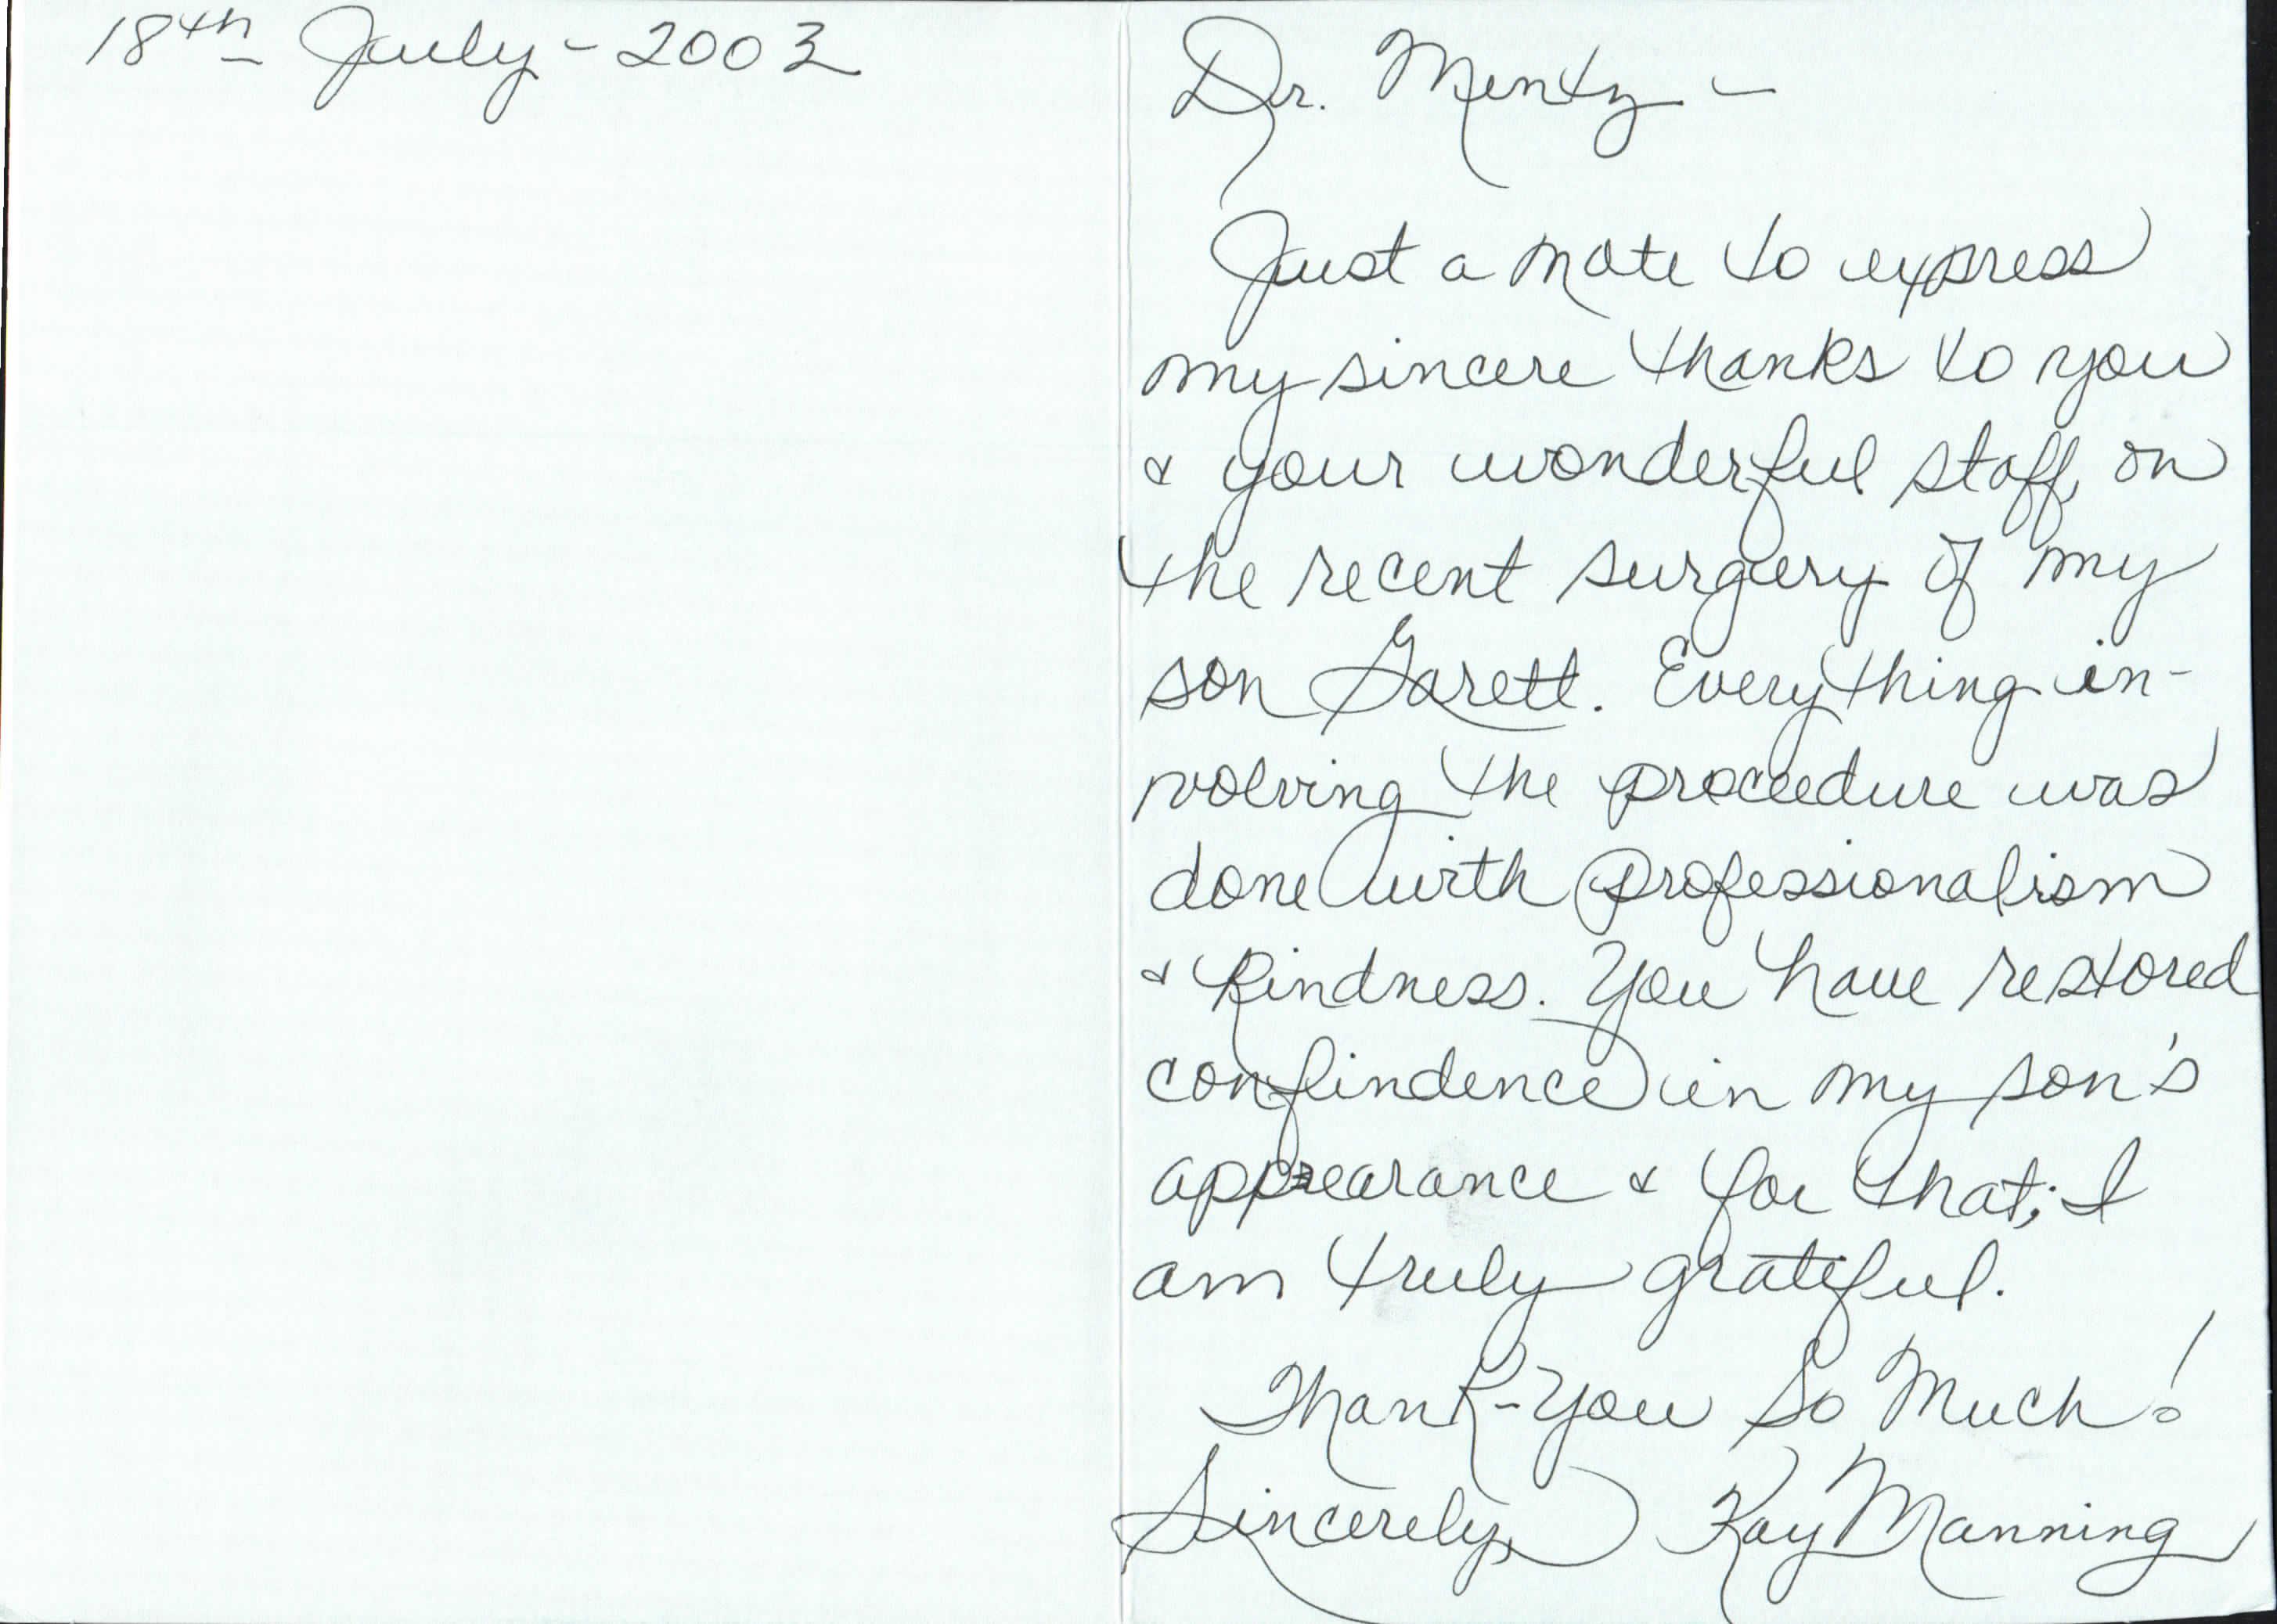 18th July - 2003
Dr. Mentz -
Just a note to express
my sincere thanks to you
& your wonderful staff, on
the recent surgery of my
son Garett. Everything in-
volving the proceedure was
done with professionalism
& kindness. You have restored
confindence in my son's
appearance & for that; I
am truly grateful.
Thank-You So Much!
Sincerely, Kay Manning